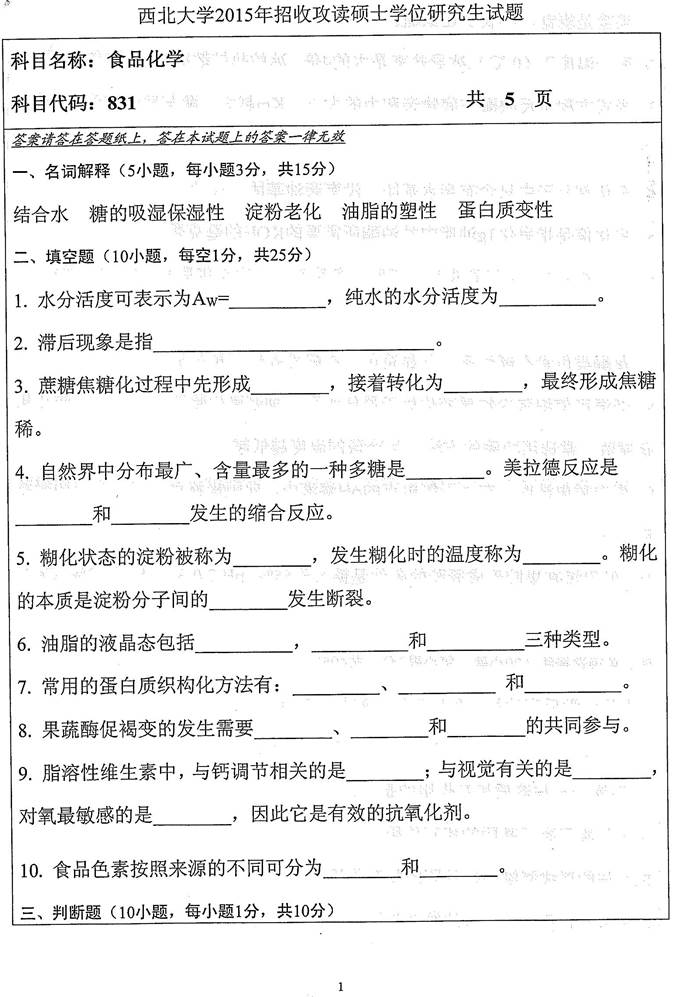 西北大学2015年招收攻读硕士学位研究生试题
科目名称：食品化学
科目代码：831 共 5 页
答案请答在答题纸上，答在本试题上的答案一律无效
一、名词解释（5小题，每小题3分，共15分）
结合水 糖的吸湿保湿性 淀粉老化 油脂的塑性 蛋白质变性
二、填空题（10小题，每空1分，共25分）
1. 水分活度可表示为Aw=__________，纯水的水分活度为__________。
2. 滞后现象是指______________________________。
3. 蔗糖焦糖化过程中先形成________，接着转化为________，最终形成焦糖
稀。
4. 自然界中分布最广、含量最多的一种多糖是________。美拉德反应是
________和________发生的缩合反应。
5. 糊化状态的淀粉被称为________，发生糊化时的温度称为________。糊化
的本质是淀粉分子间的________发生断裂。
6. 油脂的液晶态包括__________，__________和__________三种类型。
7. 常用的蛋白质织构化方法有：_________、__________ 和__________。
8. 果蔬酶促褐变的发生需要________、________和________的共同参与。
9. 脂溶性维生素中，与钙调节相关的是________；与视觉有关的是________，
对氧最敏感的是________，因此它是有效的抗氧化剂。
10. 食品色素按照来源的不同可分为________和________。
三、判断题（10小题，每小题1分，共10分）
1